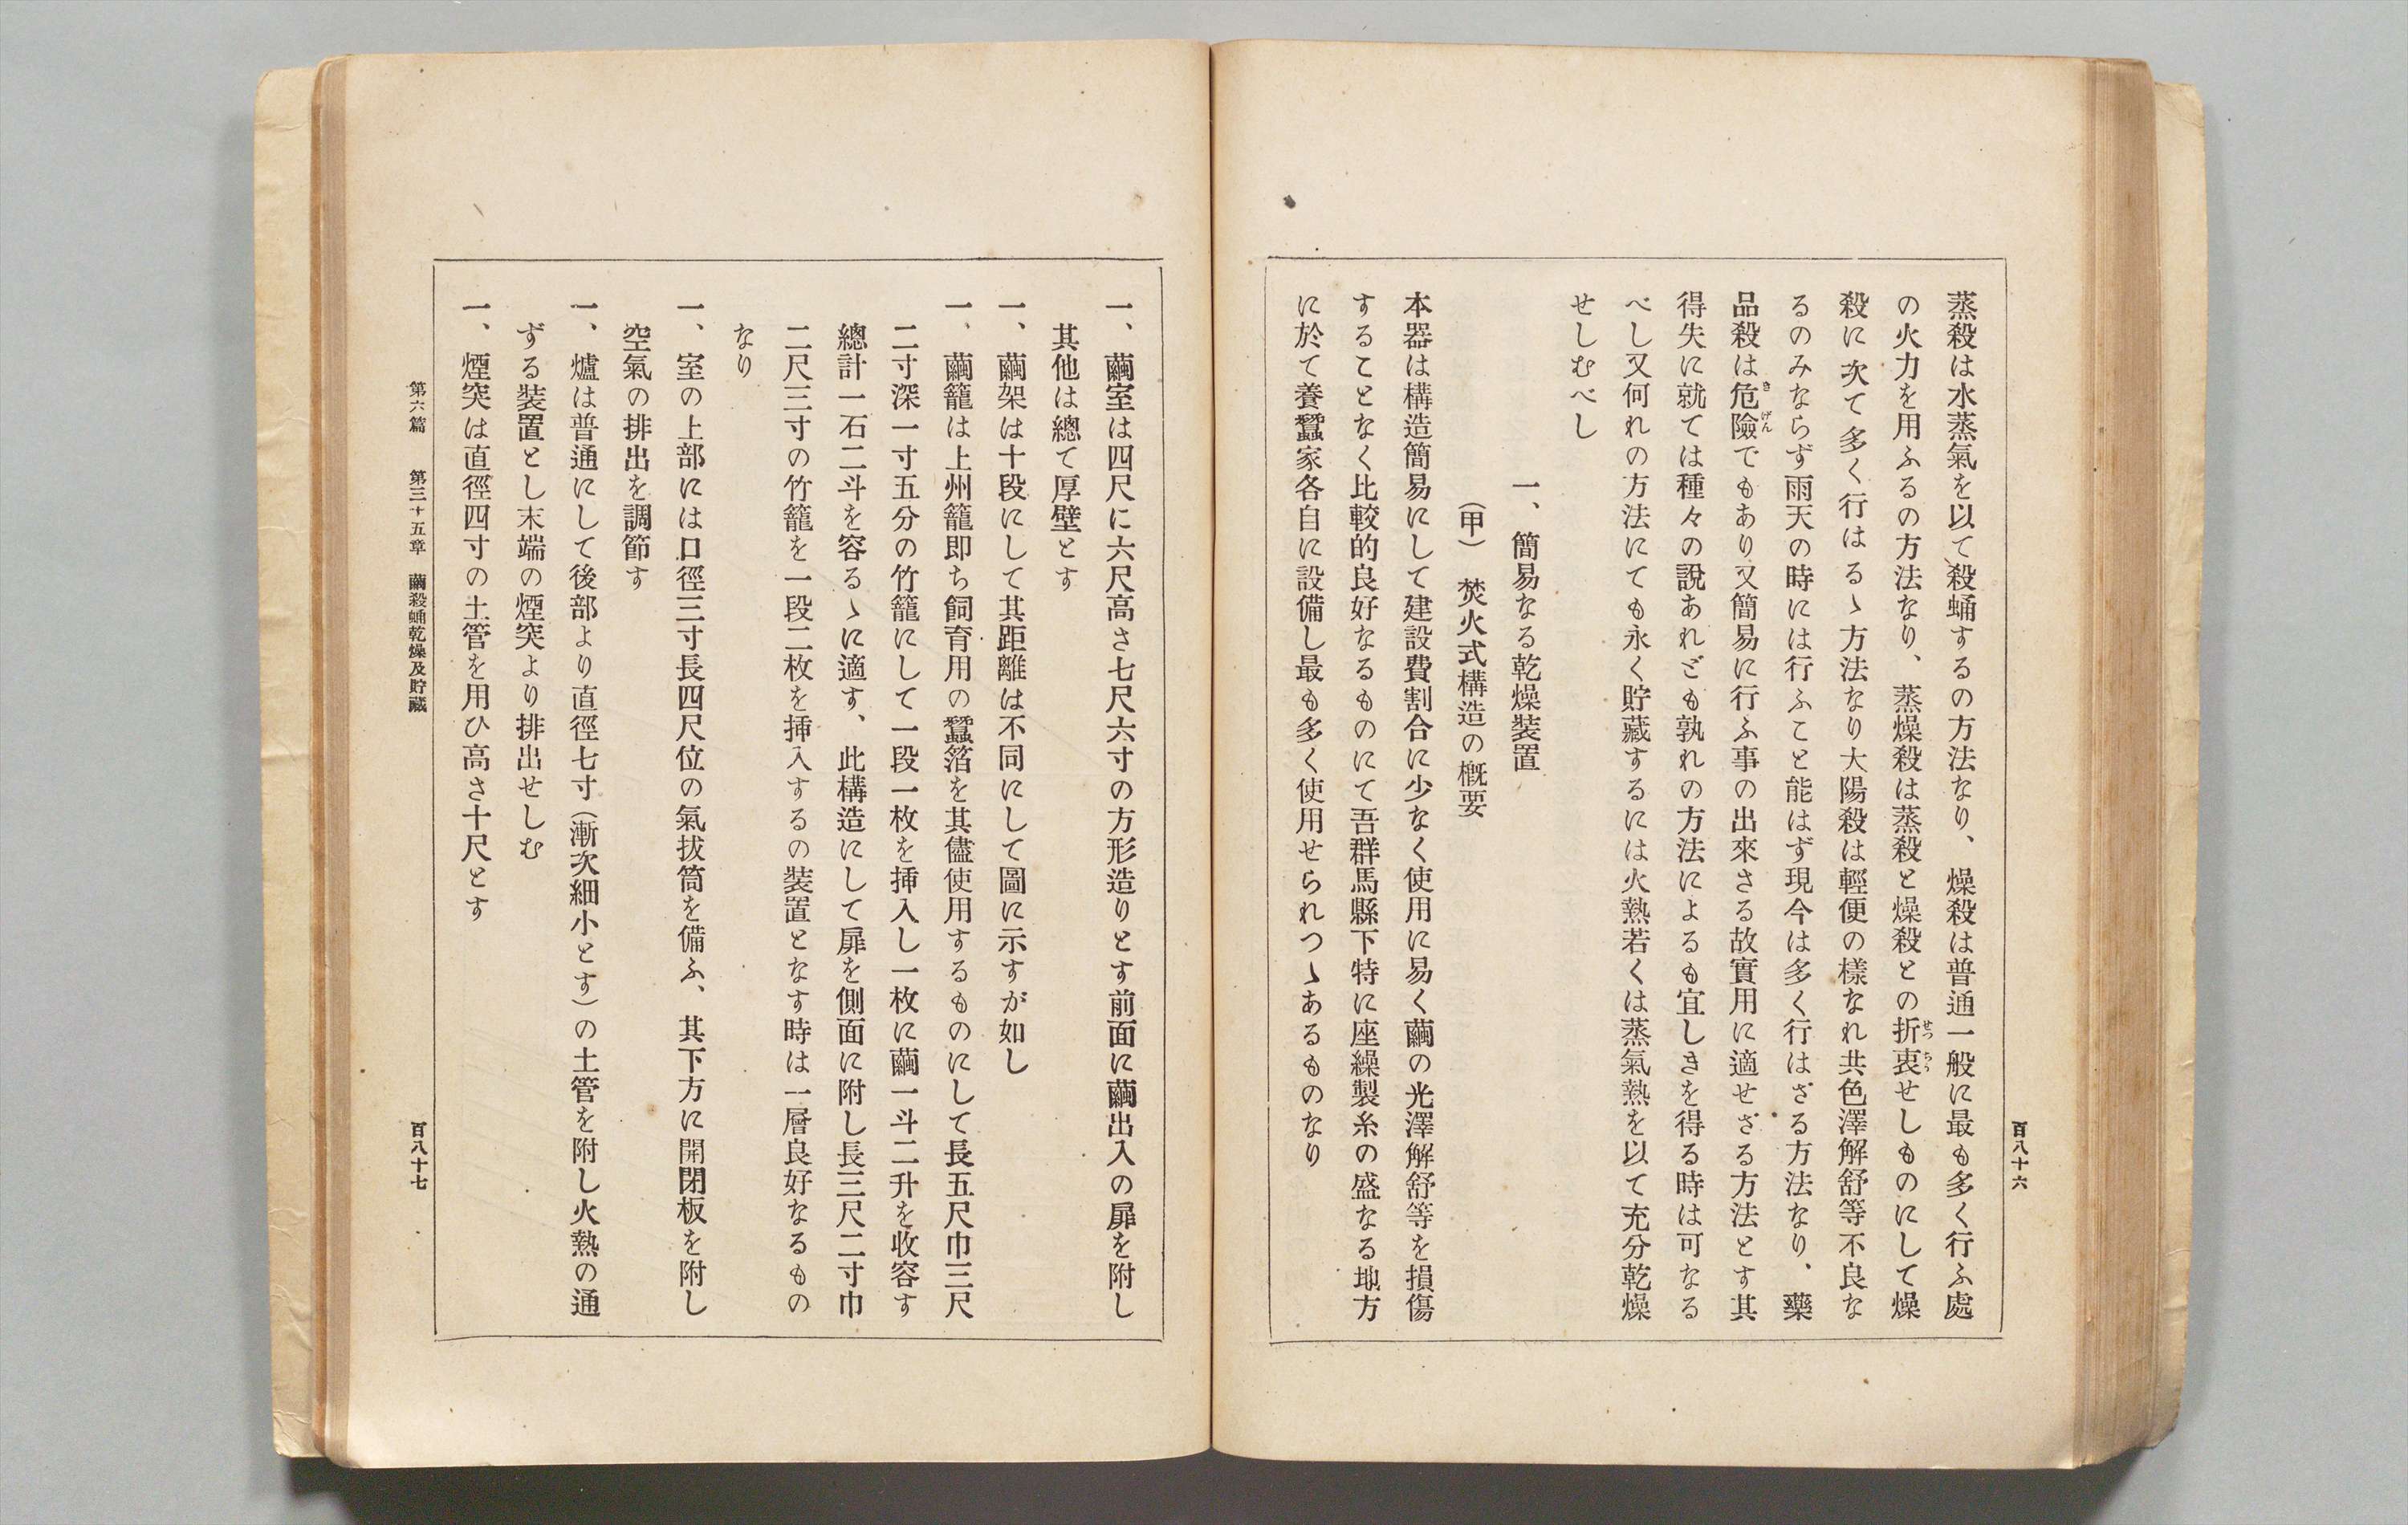 百八十六
蒸殺は水蒸氣を以て殺蛹するの方法なり、燥殺は普通一般に最も多く行ふ處
の火力を用ふるの方法なり、蒸燥殺は蒸殺と燥殺との折衷せしものにして燥
せつちう
殺に次て多く行はるゝ方法なり大陽殺は輕便の樣なれ共色澤解舒等不良な
るのみならず雨天の時には行ふこと能はず現今は多く行はざる方法なり、藥
品殺は危險でもあり又簡易に行ふ事の出來さる故實用に適せざる方法とす其
きげん
得失に就ては種々の說あれども孰れの方法によるも宜しきを得る時は可なる
べし又何れの方法にても永く貯藏するには火熱若くは蒸氣熱を以て充分乾燥
せしむべし
一、簡易なる乾燥裝置
(甲) 焚火式構造の槪要
本器は構造簡易にして建設費割合に少なく使用に易く繭の光澤解舒等を損傷
することなく比較的良好なるものにて吾群馬縣下特に座繰製糸の盛なる地方
に於て養蠶家各自に設備し最も多く使用せられつゝあるものなり
一、繭室は四尺に六尺高さ七尺六寸の方形造りとす前面に繭出入の扉を附し
其他は總て厚壁とす
一、繭架は十段にして其距離は不同にして圖に示すが如し
一、繭籠は上州籠卽ち飼育用の蠶箔を其儘使用するものにして長五尺巾三尺
二寸深一寸五分の竹籠にして一段一枚を挿入し一枚に繭一斗二升を收容す
總計一石二斗を容るゝに適す、此構造にして扉を側面に附し長三尺二寸巾
二尺三寸の竹籠を一段二枚を挿入するの裝置となす時は一層良好なるもの
なり
一、室の上部には口徑三寸長四尺位の氣拔筒を備ふ、其下方に開閉板を附し
空氣の排出を調節す
一、爐は普通にして後部より直徑七寸(漸次細小とす)の土管を附し火熱の通
ずる裝置とし末端の煙突より排出せしむ
一、煙突は直徑四寸の土管を用ひ高さ十尺とす
第六篇 第三十五章 繭殺蛹乾燥及貯藏
百八十七